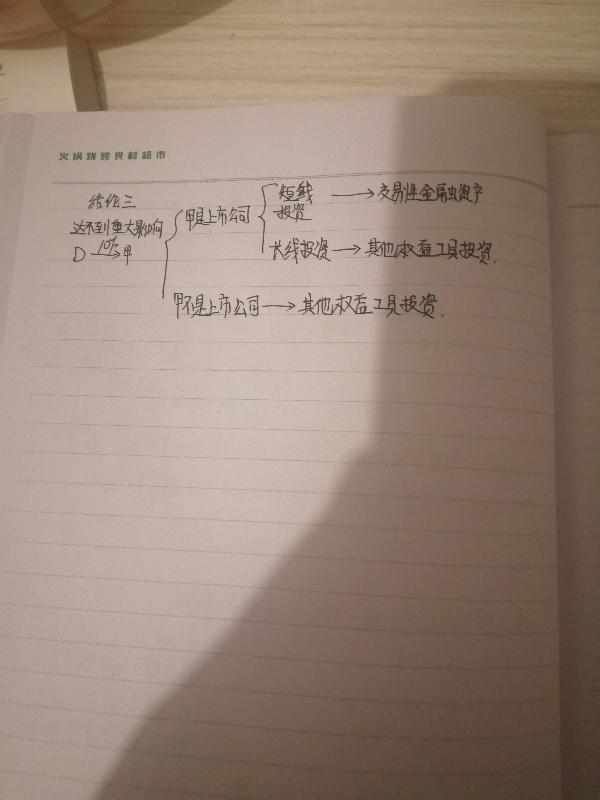 火锅烧烤食材超市
结论三
达不到重大影响
D 10% → 甲
甲是上市公司
短线 → 交易性金融资产
投资
长线投资 → 其他权益工具投资.
甲不是上市公司 → 其他权益工具投资.